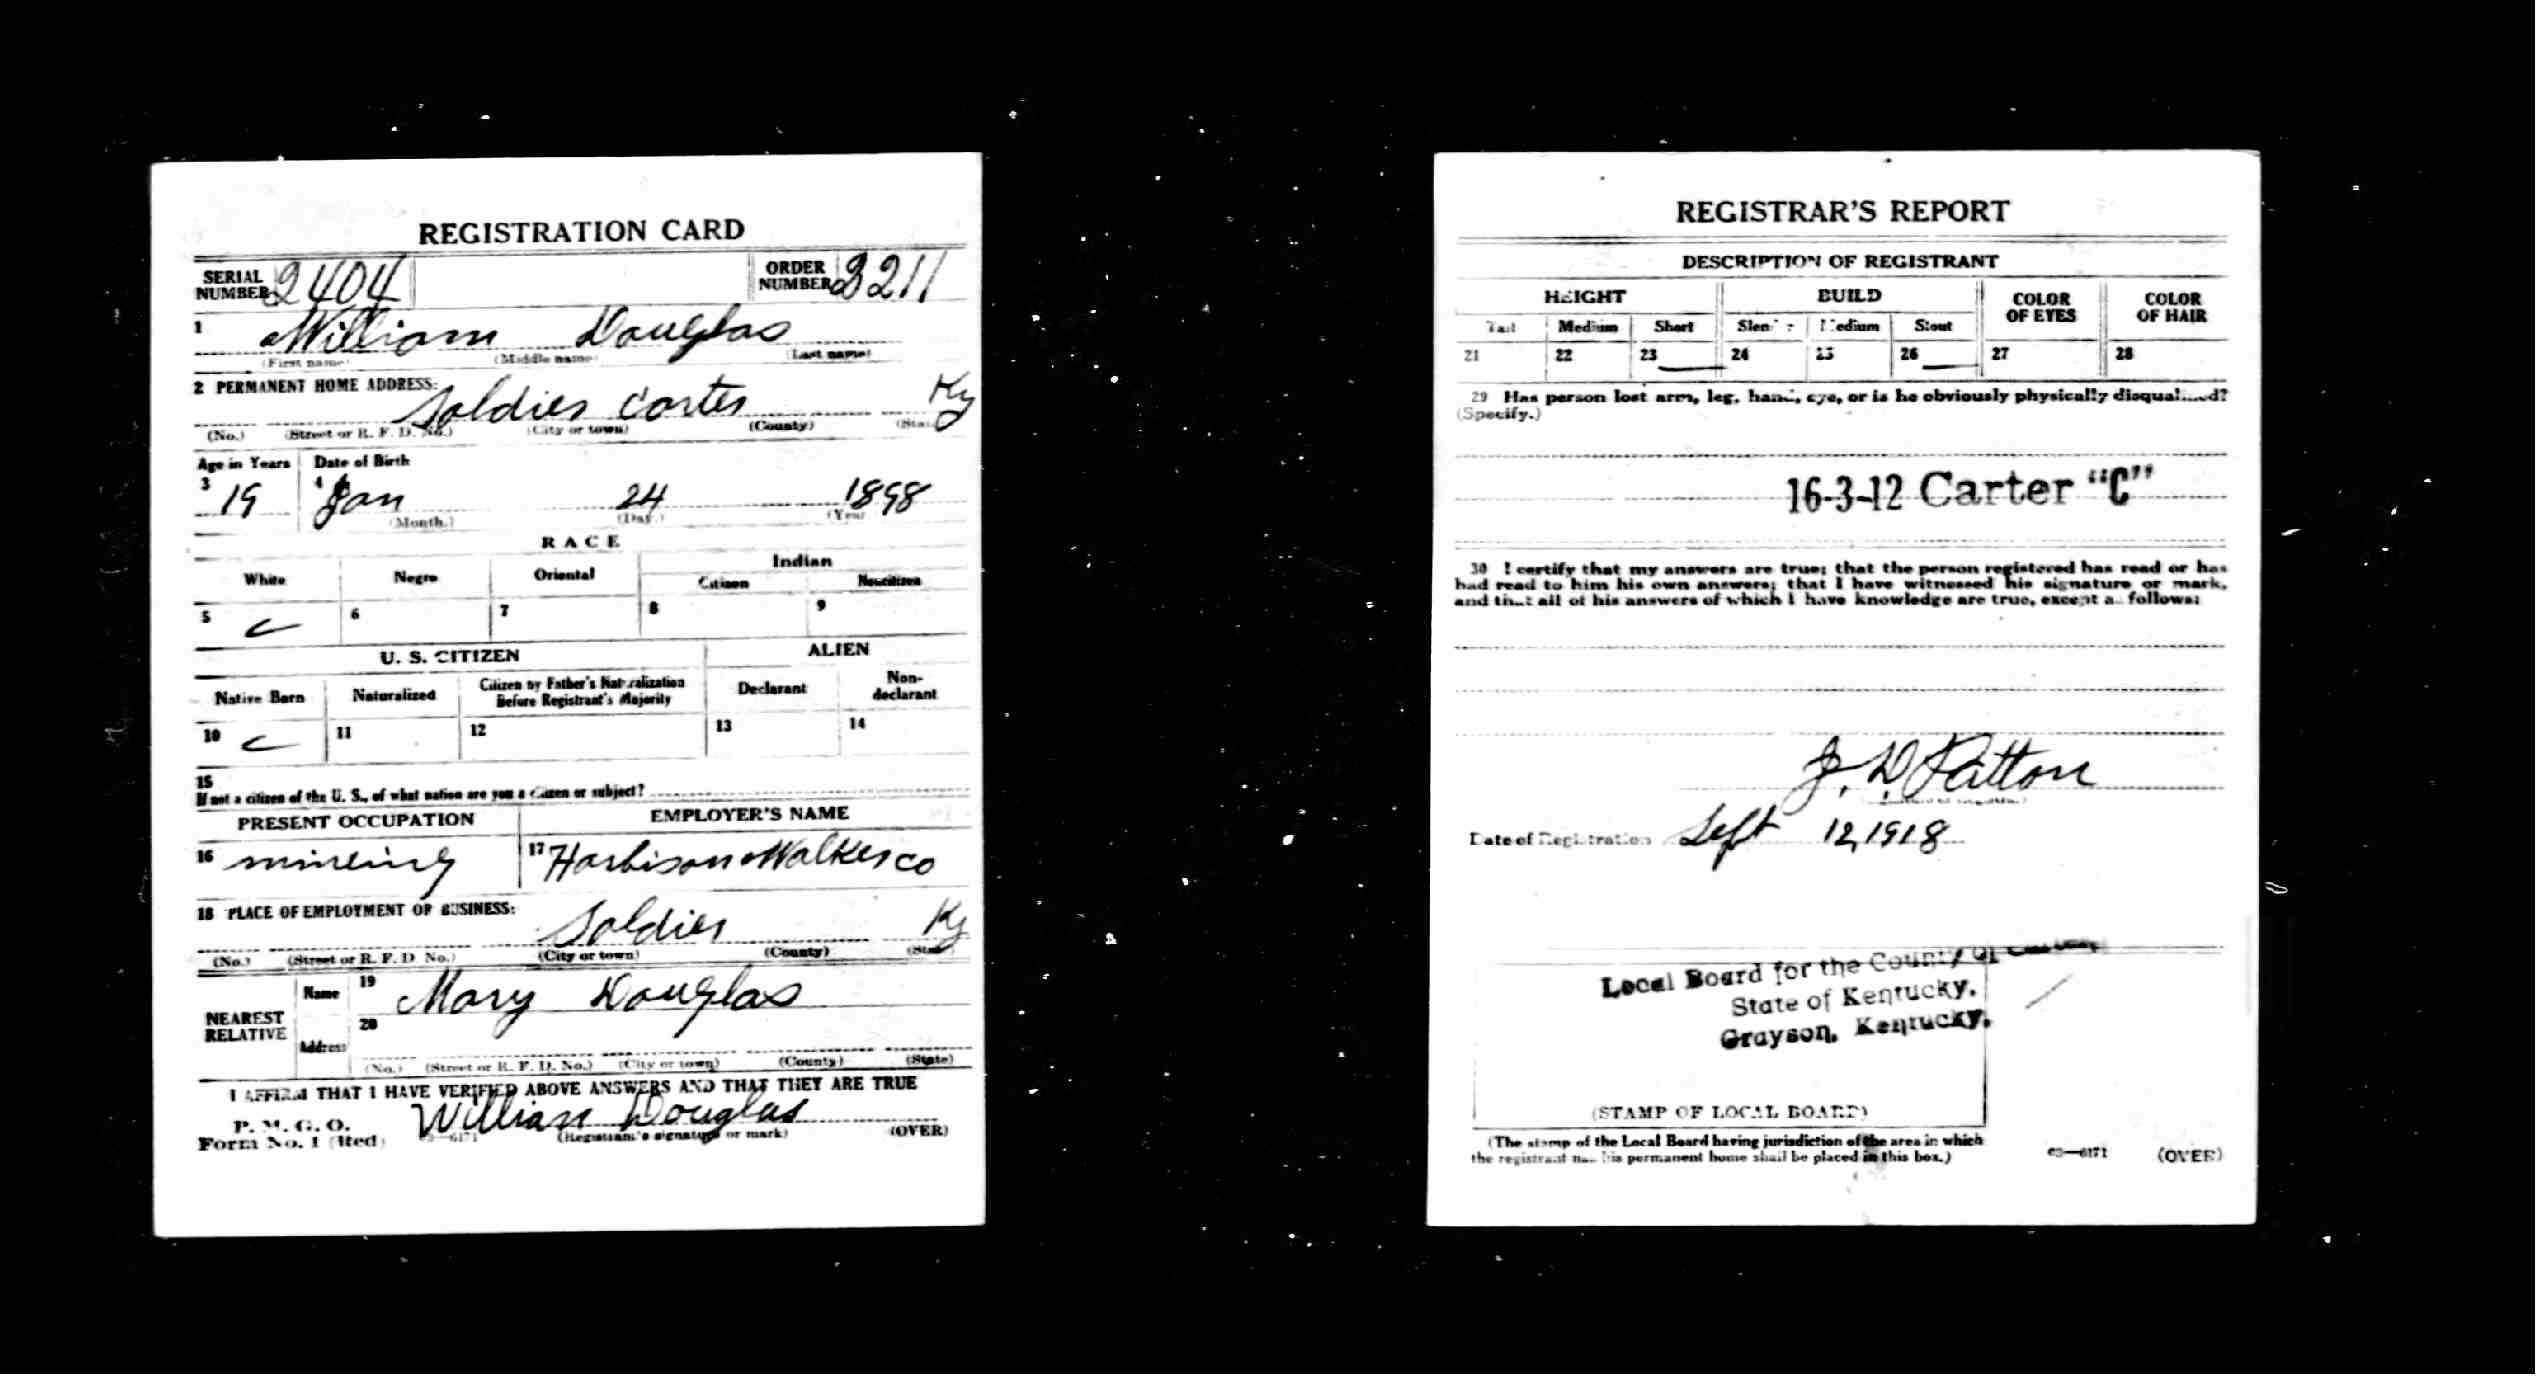 REGISTRATION CARD
SERIAL NUMBER 2404 ORDER NUMBER 3211
1 William Douglas
(First name) (Middle name) (Last name)
2 PERMANENT HOME ADDRESS:
Soldier Carter Ky
(No.) (Street or R. F. D. No.) (City or town) (County) (State)
Age in Years Date of Birth
3 19 4 Jan 24 1898
(Month.) (Day.) (Year
RACE
White Negro Oriental Indian
Citizen Noncitizen
5 6 7 8 9
U. S. CITIZEN ALIEN
Native Born Naturalized Citizen by Father's Naturalization Before Registrant's Majority Declarant Non-declarant
10 11 12 13 14
15
If not a citizen of the U. S., of what nation are you a citizen or subject?
PRESENT OCCUPATION EMPLOYER'S NAME
16 mineing 17 Harbison Walker co
18 PLACE OF EMPLOYMENT OR BUSINESS:
Soldier Ky
(No.) (Street or R. F. D. No.) (City or town) (County) (State)
NEAREST RELATIVE Name 19 Mary Douglas
Address 20
(No.) (Street or R. F. D. No.) (City or town) (County) (State)
I AFFIRM THAT I HAVE VERIFIED ABOVE ANSWERS AND THAT THEY ARE TRUE
P. M. G. O.
Form No. 1 (Red) 03—6171 William Douglas
(Registrant's signature or mark) (OVER)
REGISTRAR'S REPORT
DESCRIPTION OF REGISTRANT
HEIGHT BUILD COLOR OF EYES COLOR OF HAIR
Tall Medium Short Slender Medium Stout
21 22 23 24 25 26 27 28
29 Has person lost arm, leg, hand, eye, or is he obviously physically disqualified?
(Specify.)
16-3-12 Carter "C"
30 I certify that my answers are true; that the person registered has read or has
had read to him his own answers; that I have witnessed his signature or mark,
and that all of his answers of which I have knowledge are true, except as follows:
J. D. Patton
Date of Registration Sept 12, 1918
Local Board for the County of
State of Kentucky,
Grayson, Kentucky.
(STAMP OF LOCAL BOARD)
(The stamp of the Local Board having jurisdiction of the area in which
the registrant has his permanent home shall be placed in this box.)
03—6171 (OVER)